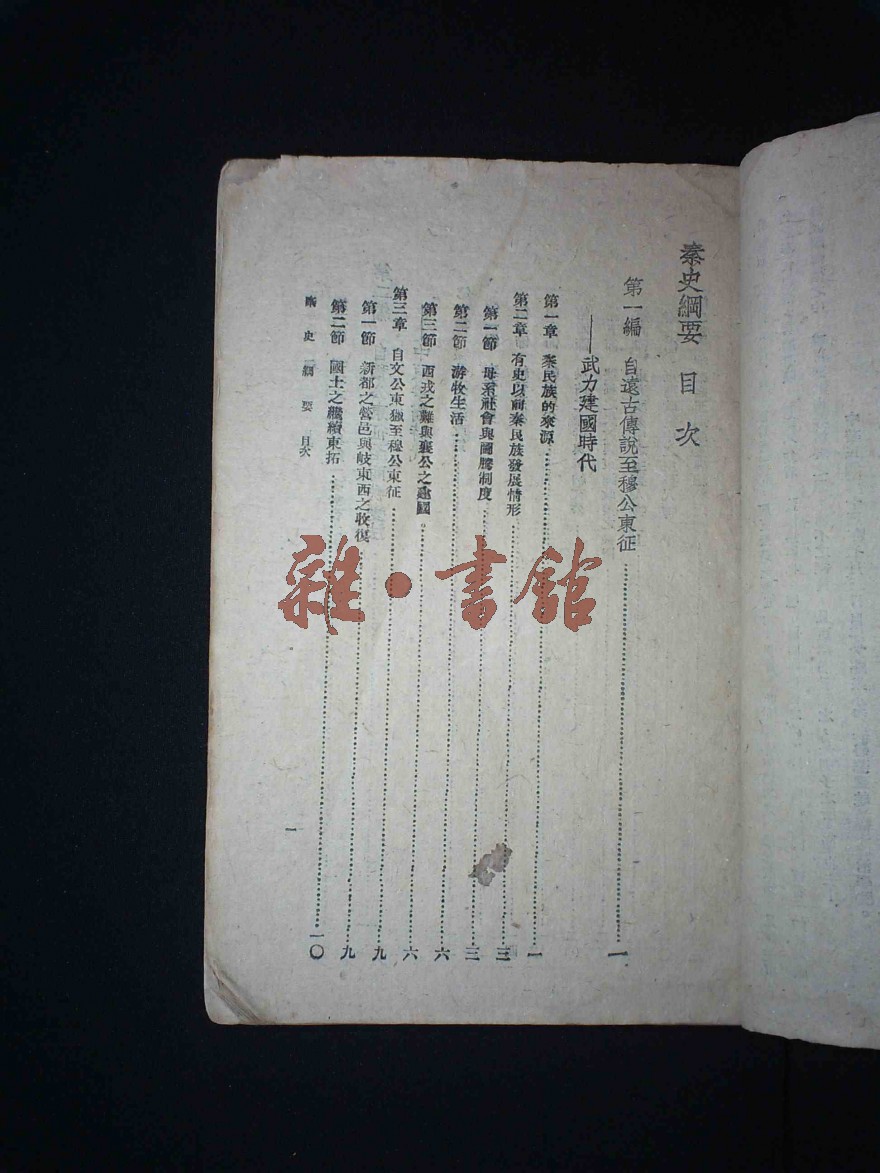 秦史綱要 目次
第一編 自遠古傳說至穆公東征……一
——武力建國時代
第一章 秦民族的來源……一
第二章 有史以前秦民族發展情形……三
第一節 母系社會與圖騰制度……三
第二節 游牧生活……六
第三節 西戎之難與襄公之建國……六
第三章 自文公東獵至穆公東征……九
第一節 新都之營邑與岐東西之收復……九
第二節 國土之繼續東拓……一〇
史綱要 目次
一
雜·書館